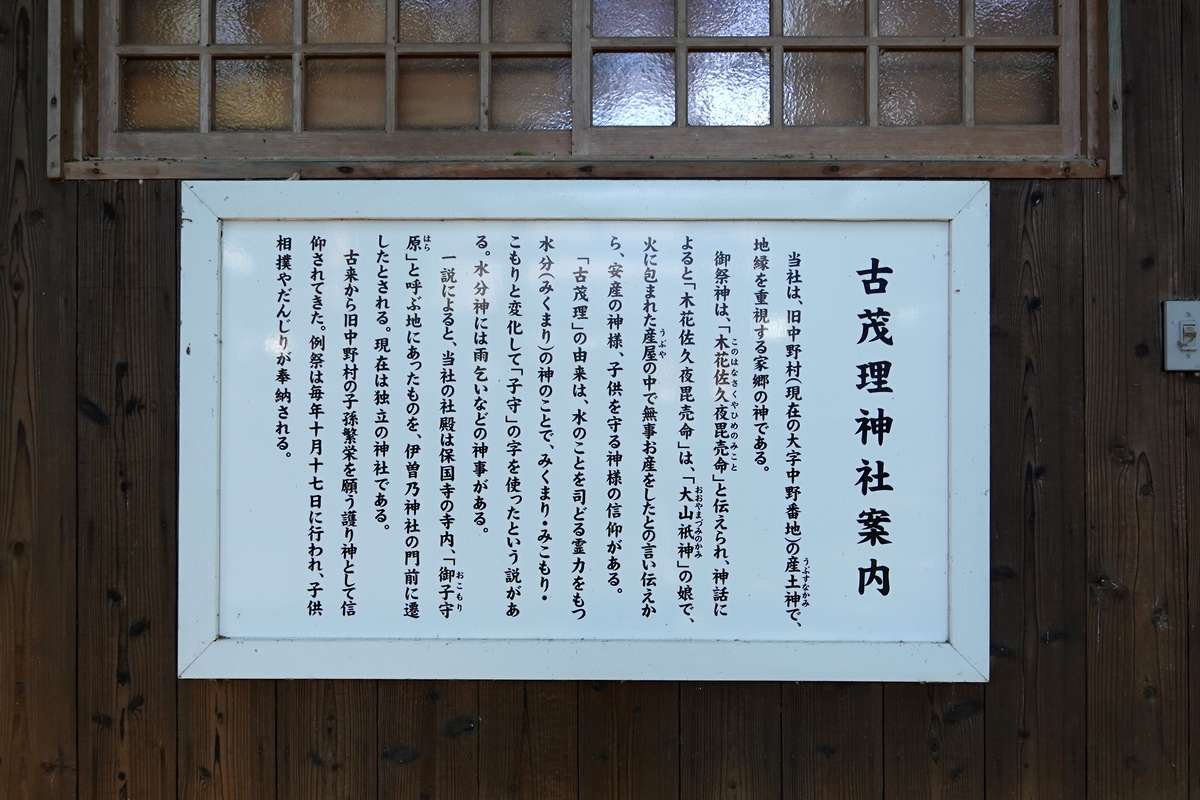 古茂理神社案内
当社は、旧中野村(現在の大字中野番地)の産土神で、
うぶすなかみ
地縁を重視する家郷の神である。
御祭神は、「木花佐久夜毘売命」と伝えられ、神話に
このはなさくやひめのみこと
よると「木花佐久夜毘売命」は、「大山祇神」の娘で、
おおやまづみのかみ
火に包まれた産屋の中で無事お産をしたとの言い伝えか
うぶや
ら、安産の神様、子供を守る神様の信仰がある。
「古茂理」の由来は、水のことを司どる霊力をもつ
水分(みくまり)の神のことで、みくまり・みこもり・
こもりと変化して「子守」の字を使ったという説があ
る。水分神には雨乞いなどの神事がある。
一説によると、当社の社殿は保国寺の寺内、「御子守
おこもり
原」と呼ぶ地にあったものを、伊曽乃神社の門前に遷
はら
したとされる。現在は独立の神社である。
古来から旧中野村の子孫繁栄を願う護り神として信
仰されてきた。例祭は毎年十月十七日に行われ、子供
相撲やだんじりが奉納される。